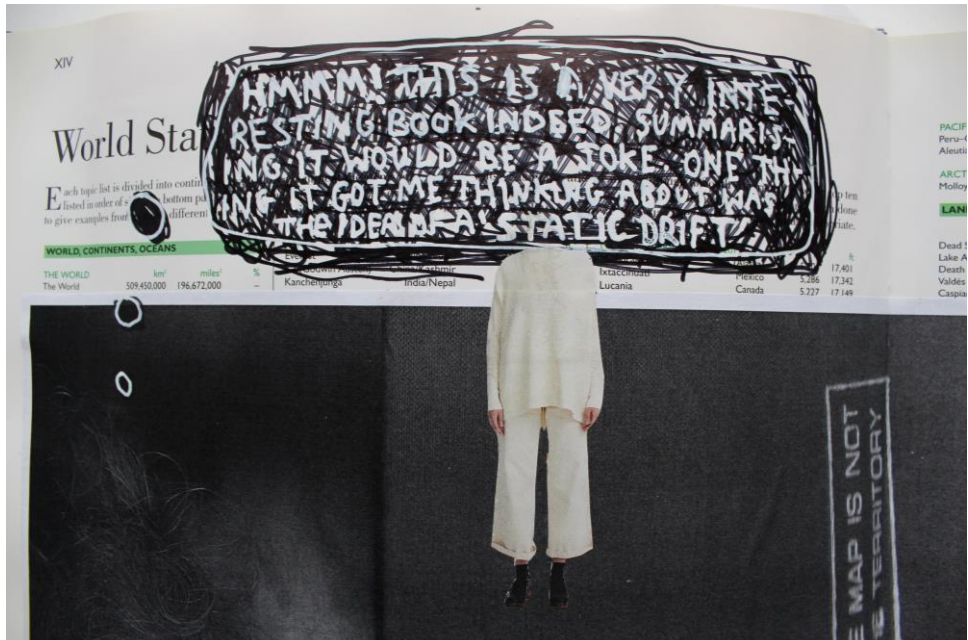 XIV
HMMM! THIS IS A VERY INTE-
RESTING BOOK INDEED. SUMMARIS-
ING IT WOULD BE A JOKE. ONE TH-
ING IT GOT ME THINKING ABOUT WAS
THE IDEA OF A 'STATIC DRIFT'
World Sta
Each topic list is divided into contin
listed in order of s bottom pa
to give examples from different
p ten
done
riate.
WORLD, CONTINENTS, OCEANS
THE WORLD km² miles² %
The World 509,450,000 196,672,000 –
Kashmir
Kanchenjunga India/Nepal
Ixtaccihuatl
Lucania
ft
17,401
Mexico 5,286 17,342
Canada 5,227 17,149
PACIF
Peru–C
Aleutia
ARCT
Molloy
LAN
Dead S
Lake A
Death
Valdés
Caspia
E MAP IS NOT
E TERRITORY